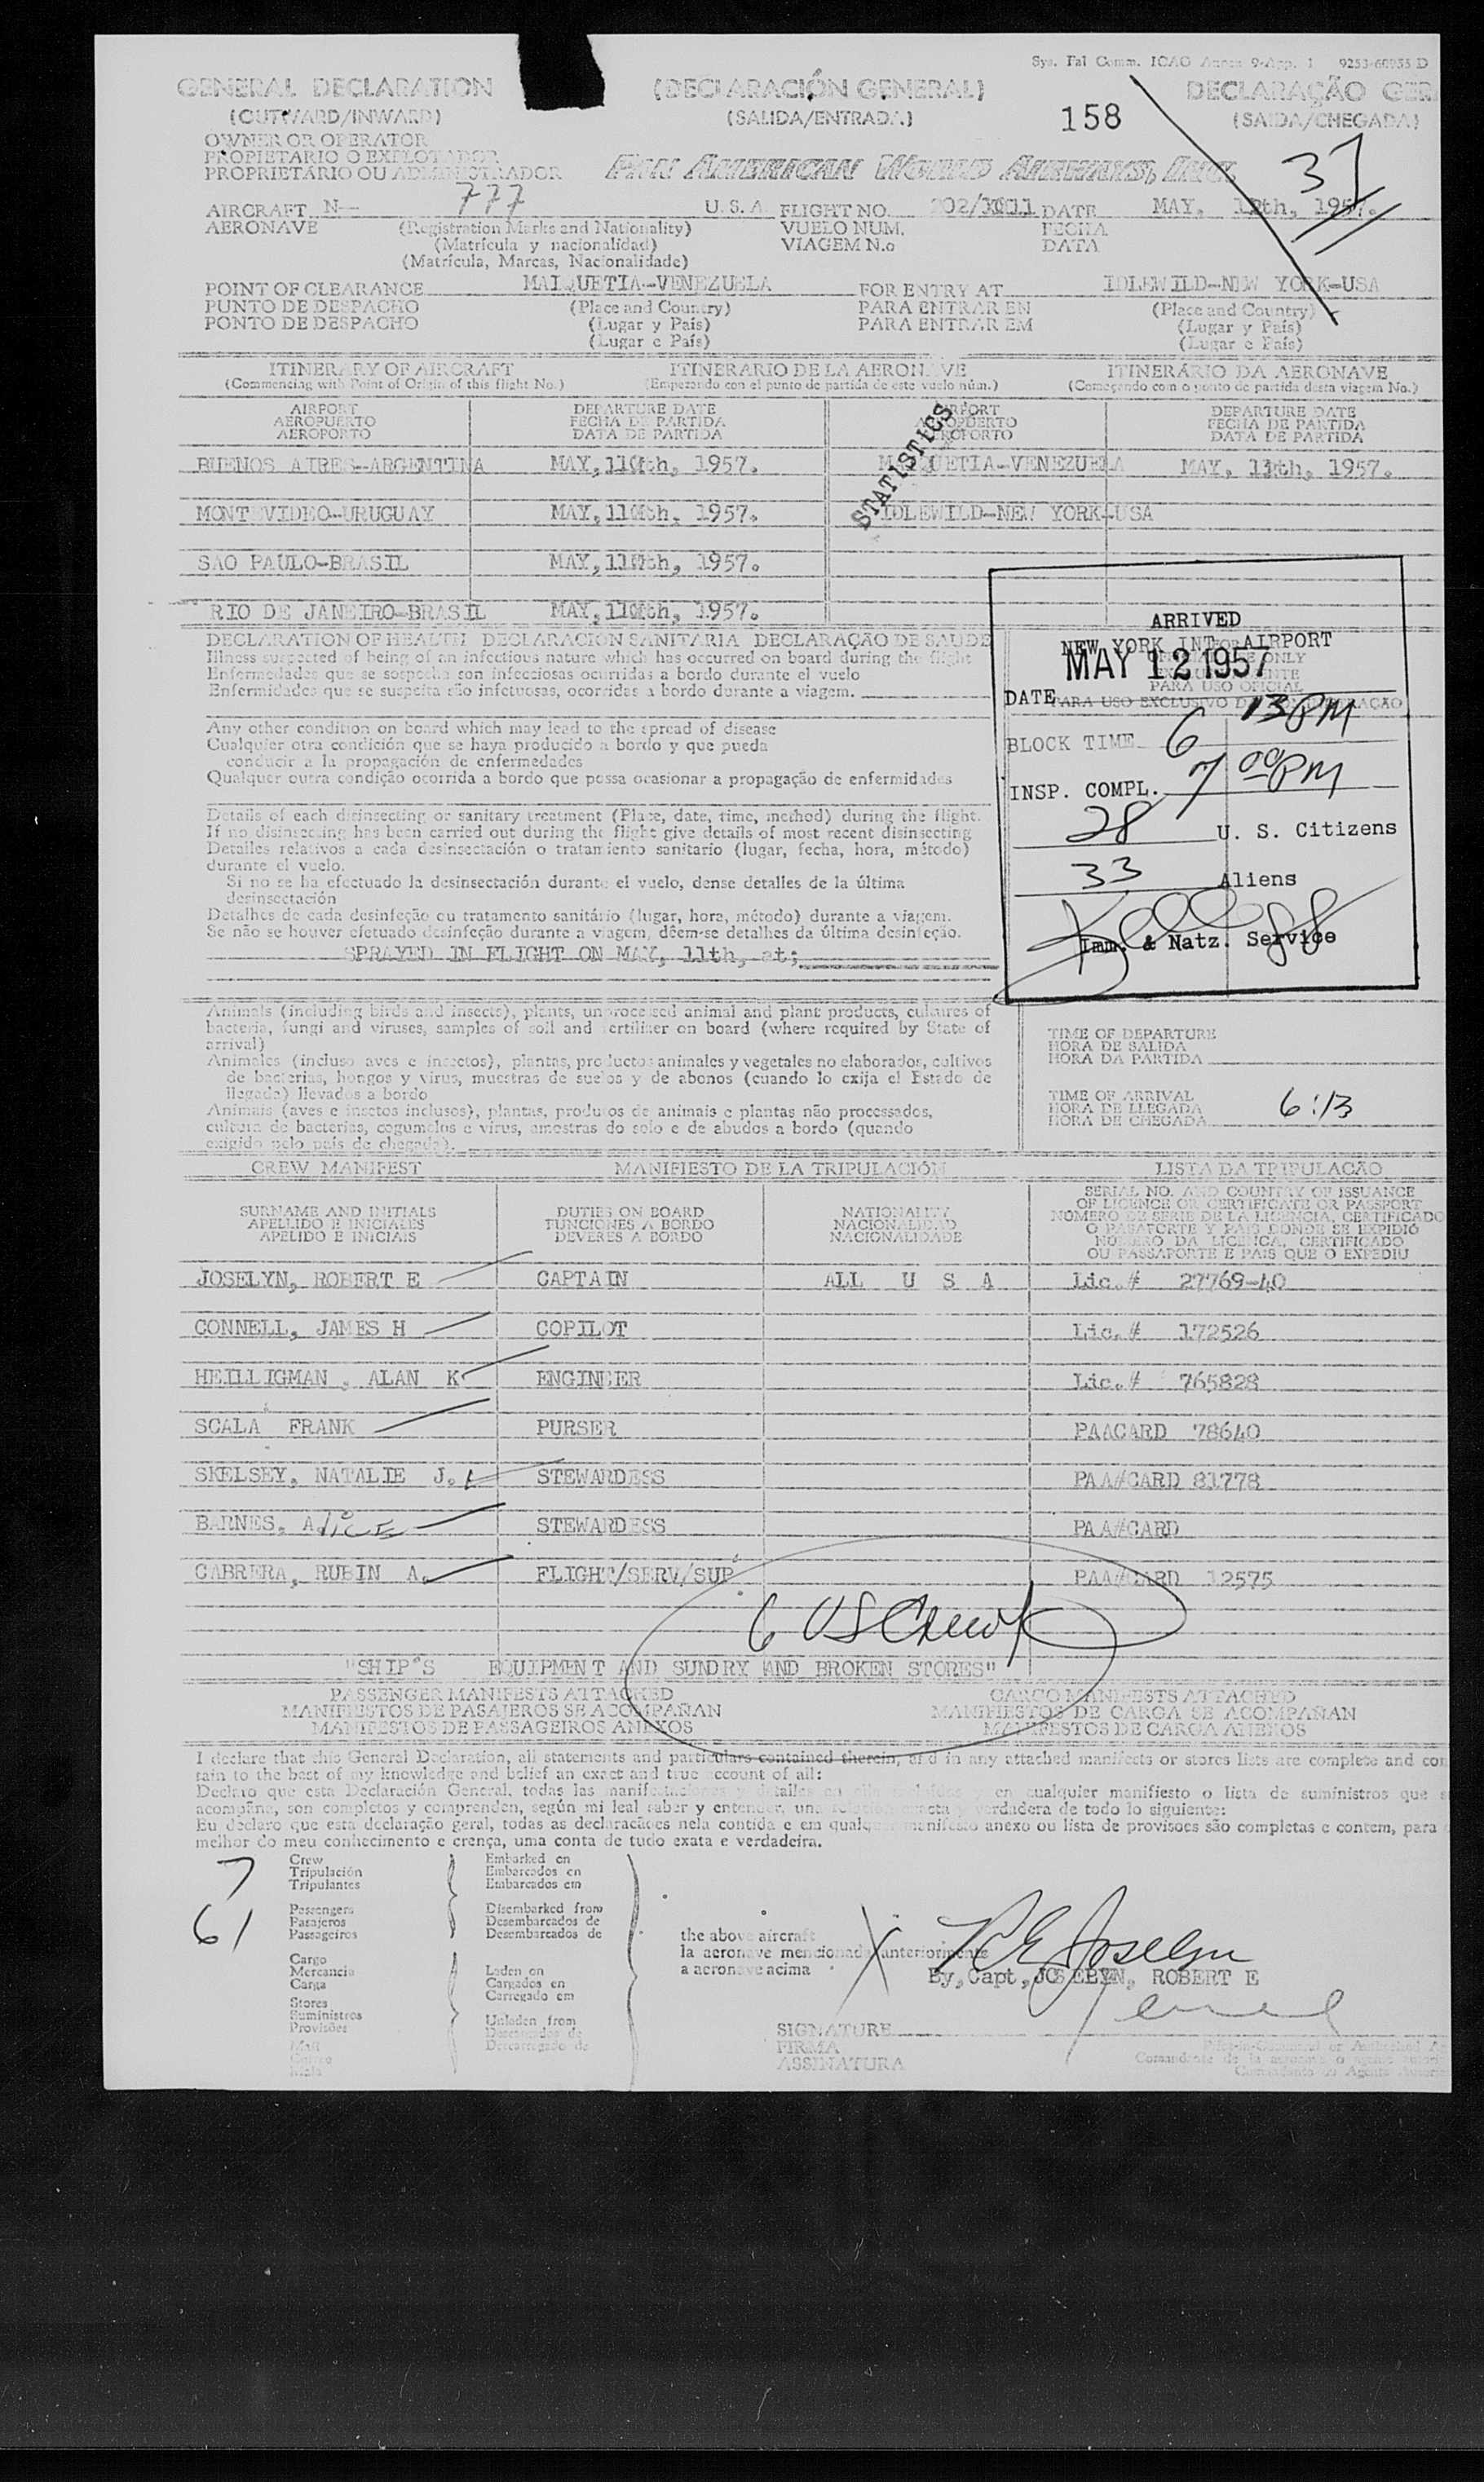 Sys. Fal Comm. ICAO Annex 9-App. 1 9253-60955 D
GENERAL DECLARATION (DECLARACIÓN GENERAL) DECLARAÇÃO GER
(OUTWARD/INWARD) (SALIDA/ENTRADA) 158 (SAIDA/CHEGADA)
OWNER OR OPERATOR
PROPIETARIO O EXPLOTADOR
PROPRIETÁRIO OU ADMINISTRADOR PAN AMERICAN WORLD AIRWAYS, INC.
AIRCRAFT N- 777 U.S.A. FLIGHT NO. 202/ DATE MAY, 1957.
AERONAVE (Registration Marks and Nationality) VUELO NUM. FECHA
(Matrícula y nacionalidad) VIAGEM N.o DATA
(Matrícula, Marcas, Nacionalidade)
POINT OF CLEARANCE MAIQUETIA-VENEZUELA FOR ENTRY AT IDLEWILD-NEW YORK-USA
PUNTO DE DESPACHO (Place and Country) PARA ENTRAR EN (Place and Country)
PONTO DE DESPACHO (Lugar y País) PARA ENTRAR EM (Lugar y País)
(Lugar e País) (Lugar e País)
ITINERARY OF AIRCRAFT ITINERARIO DE LA AERONAVE ITINERÁRIO DA AERONAVE
(Commencing with Point of Origin of this flight No.) (Empezando con el punto de partida de este vuelo núm.) (Começando com o ponto de partida desta viagem No.)
AIRPORT DEPARTURE DATE AIRPORT DEPARTURE DATE
AEROPUERTO FECHA DE PARTIDA AEROPUERTO FECHA DE PARTIDA
AEROPORTO DATA DE PARTIDA AEROPORTO DATA DE PARTIDA
STATISTICS
BUENOS AIRES-ARGENTINA MAY, 11th, 1957. MAIQUETIA-VENEZUELA MAY, 1957.
MONTEVIDEO-URUGUAY MAY, 11th, 1957. IDLEWILD-NEW YORK-USA
SAO PAULO-BRASIL MAY, 11th, 1957.
RIO DE JANEIRO-BRASIL MAY, 11th, 1957.
DECLARATION OF HEALTH DECLARACION SANITARIA DECLARAÇÃO DE SAUDE
Illness suspected of being of an infectious nature which has occurred on board during the flight
Enfermedades que se sospecha son infecciosas ocurridas a bordo durante el vuelo
Enfermidades que se suspeita são infetuosas, ocorridas a bordo durante a viagem.
Any other condition on board which may lead to the spread of disease
Cualquier otra condición que se haya producido a bordo y que pueda
conducir a la propagación de enfermedades
Qualquer outra condição ocorrida a bordo que possa ocasionar a propagação de enfermidades
Details of each disinsecting or sanitary treatment (Place, date, time, method) during the flight.
If no disinsecting has been carried out during the flight give details of most recent disinsecting
Detalles relativos a cada desinsectación o tratamiento sanitario (lugar, fecha, hora, método)
durante el vuelo.
Si no se ha efectuado la desinsectación durante el vuelo, dense detalles de la última
desinsectación
Detalhes de cada desinfeção ou tratamento sanitário (lugar, hora, método) durante a viagem.
Se não se houver efetuado desinfeção durante a viagem, dêem-se detalhes da última desinfeção.
SPRAYED IN FLIGHT ON MAY, 11th, at;
ARRIVED
NEW YORK INT. AIRPORT
MAY 12 1957
DATE
PARA USO OFICIAL
BLOCK TIME 6 13 PM
INSP. COMPL. 7 00 PM
28 U. S. Citizens
33 Aliens
Imm. & Natz. Service
Animals (including birds and insects), plants, unprocessed animal and plant products, cultures of
bacteria, fungi and viruses, samples of soil and fertilizer on board (where required by State of
arrival)
Animales (incluso aves e insectos), plantas, productos animales y vegetales no elaborados, cultivos
de bacterias, hongos y virus, muestras de suelos y de abonos (cuando lo exija el Estado de
llegada) llevados a bordo
Animais (aves e insetos inclusos), plantas, produtos de animais e plantas não processados,
cultura de bacterias, cogumelos e virus, amostras do solo e de abudos a bordo (quando
exigido pelo país de chegada).
TIME OF DEPARTURE
HORA DE SALIDA
HORA DA PARTIDA
TIME OF ARRIVAL
HORA DE LLEGADA 6:13
HORA DE CHEGADA
CREW MANIFEST MANIFIESTO DE LA TRIPULACIÓN LISTA DA TRIPULACÃO
SURNAME AND INITIALS DUTIES ON BOARD NATIONALITY SERIAL NO. AND COUNTRY OF ISSUANCE
APELLIDO E INICIALES FUNCIONES A BORDO NACIONALIDAD OF LICENCE OR CERTIFICATE OR PASSPORT
APELIDO E INICIAIS DEVERES A BORDO NACIONALIDADE NÚMERO DE SERIE DE LA LICENCIA, CERTIFICADO
O PASAPORTE Y PAIS DONDE SE EXPIDIÓ
NÚMERO DA LICENÇA, CERTIFICADO
OU PASSAPORTE E PAIS QUE O EXPEDIU
JOSELYN, ROBERT E CAPTAIN ALL U S A Lic.# 27769-40
CONNELL, JAMES H COPILOT Lic.# 172526
HEILLIGMAN, ALAN K ENGINEER Lic.# 765828
SCALA FRANK PURSER PAACARD 78640
SKELSEY, NATALIE J. STEWARDESS PAA#CARD 81778
BARNES, ALICE STEWARDESS PAA#CARD
CABRERA, RUBIN A. FLIGHT/SERV/SUP PAA#CARD 12575
6 US Crew
"SHIP'S EQUIPMENT AND SUNDRY AND BROKEN STORES"
PASSENGER MANIFESTS ATTACHED CARGO MANIFESTS ATTACHED
MANIFIESTOS DE PASAJEROS SE ACOMPAÑAN MANIFIESTOS DE CARGA SE ACOMPAÑAN
MANIFESTOS DE PASSAGEIROS ANEXOS MANIFESTOS DE CARGA ANEXOS
I declare that this General Declaration, all statements and particulars contained therein, and in any attached manifests or stores lists are complete and con
tain to the best of my knowledge and belief an exact and true account of all:
Declaro que esta Declaración General, todas las manifestaciones detalles en en cualquier manifiesto o lista de suministros que
acompaña, son completos y comprenden, según mi leal saber y entender, una relación exacta y verdadera de todo lo siguiente:
Eu declaro que esta declaração geral, todas as declaracães nela contida e em qualquer manifesto anexo ou lista de provisoes são completas e contem, para
melhor do meu conhecimento e crença, uma conta de tudo exata e verdadeira.
7 Crew Embarked on
Tripulación Embarcados en
Tripulantes Embarcados em
61 Passengers Disembarked from
Pasajeros Desembarcados de
Passageiros Desembarcados de
the above aircraft
la aeronave mencionada anteriormente
a aeronave acima
Cargo
Mercancia Laden on
Carga Cargados en
Carregado em
Stores
Suministros Unladen from
Provisões
X R E Joselyn
By, Capt, JOSELYN, ROBERT E
SIGNATURE
FIRMA
ASSINATURA